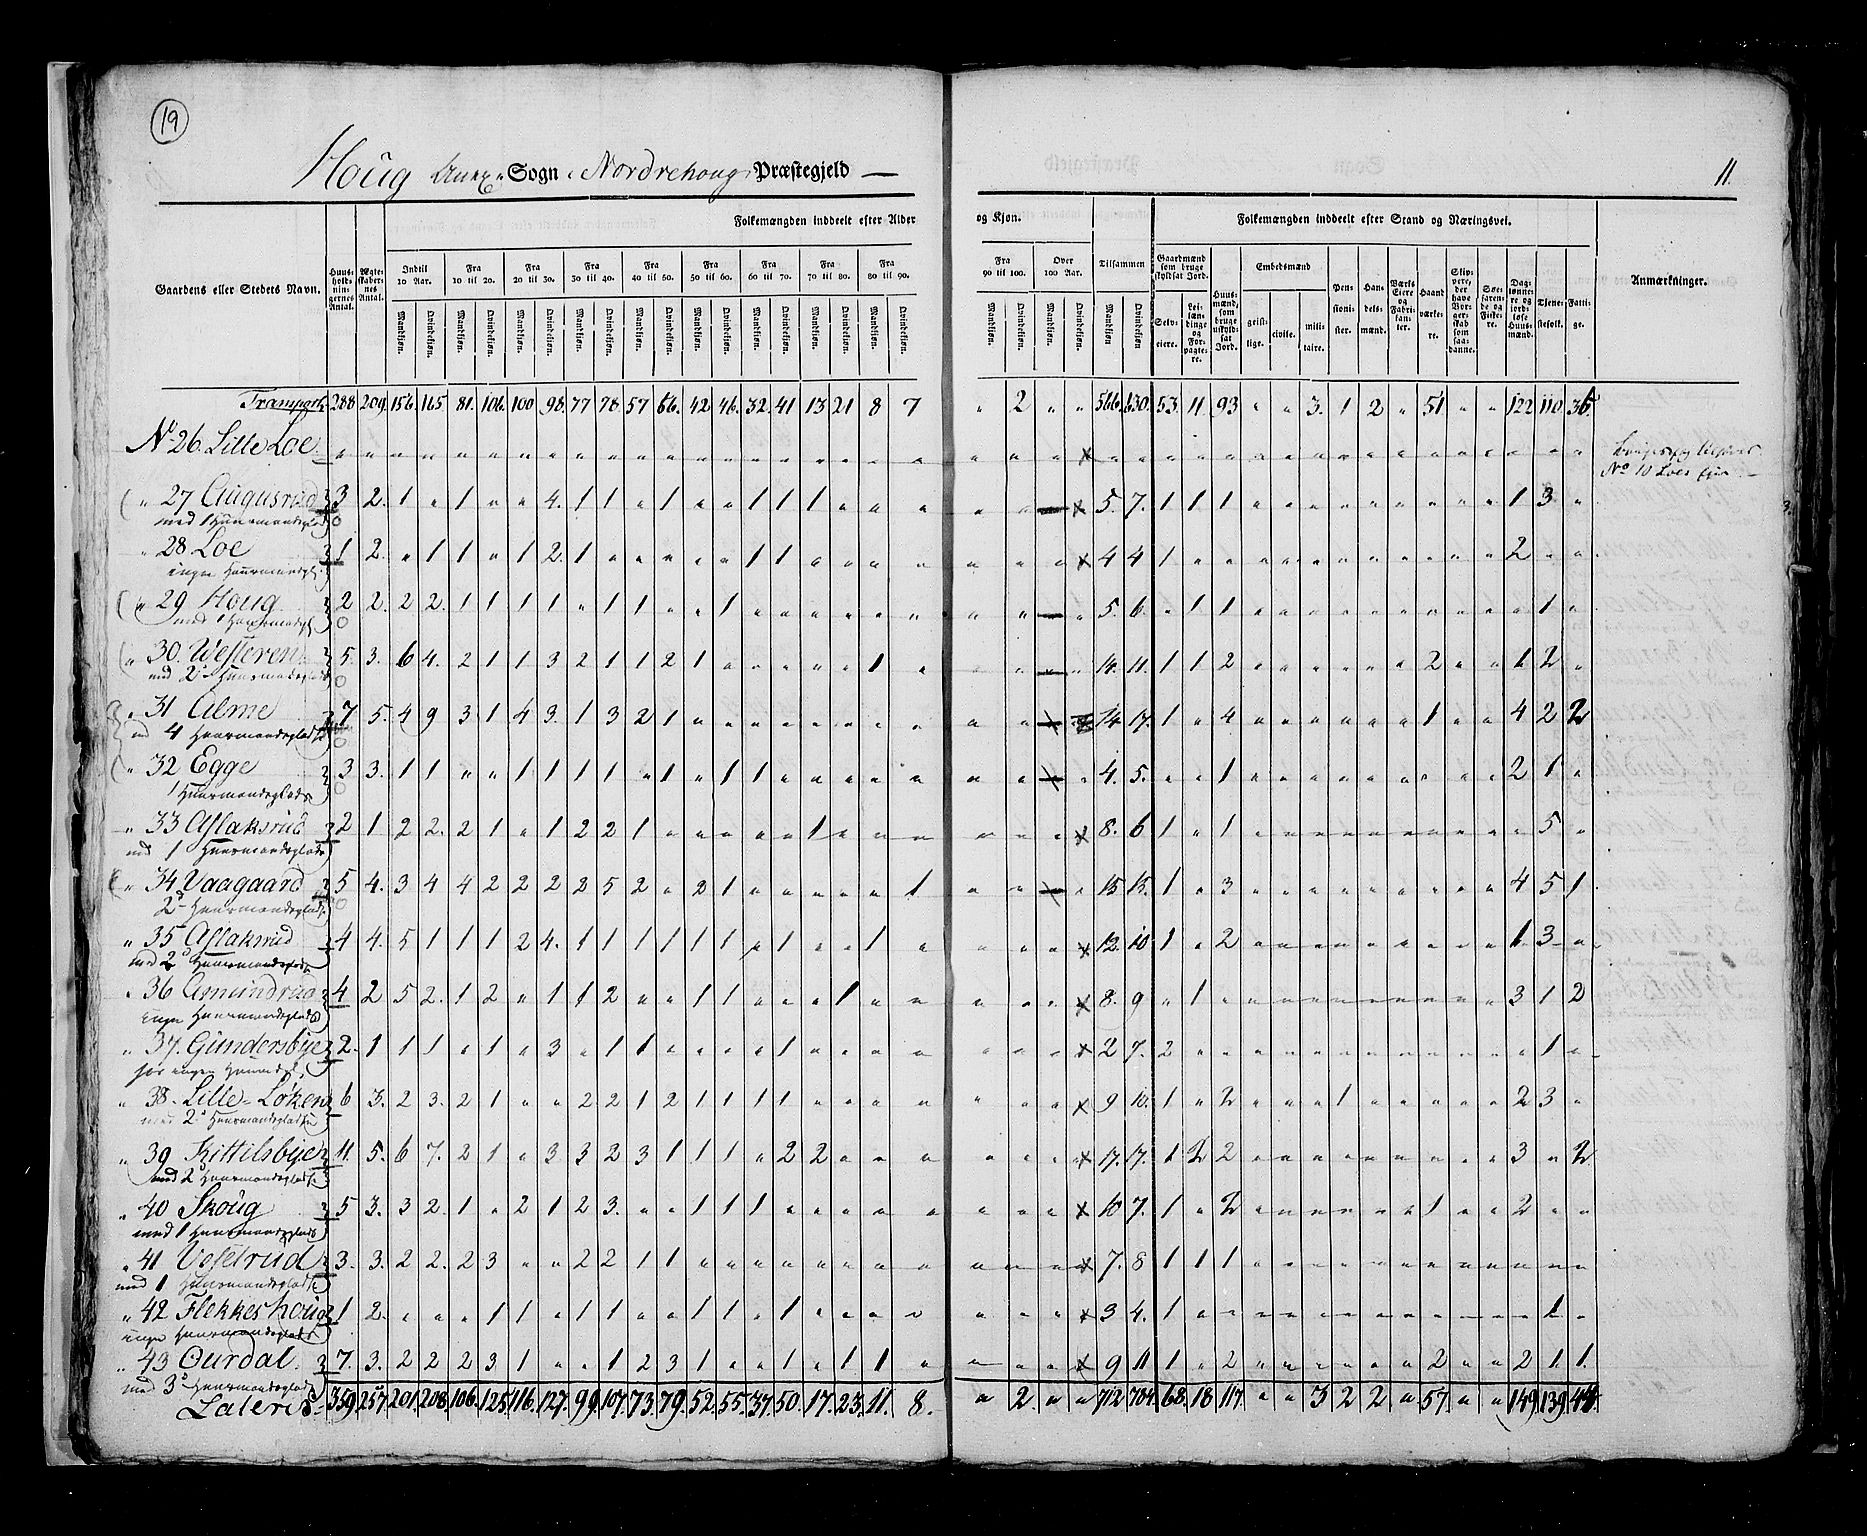 19
11.
Houg Anex Sogn i Nordrehoug Præstegjeld
Gaardens eller Stedets Navn.
Huus- hold- nin- gernes Antal.
Ægte- skaber- nes Antal.
Folkemængden inddeelt efter Alder og Kjøn.
Indtil 10 Aar. Fra 10 til 20. Fra 20 til 30. Fra 30 til 40. Fra 40 til 50. Fra 50 til 60. Fra 60 til 70. Fra 70 til 80. Fra 80 til 90. Fra 90 til 100. Over 100 Aar. Tilsammen
Mandkiøn. Qvindekiøn. Mandkiøn. Qvindekiøn. Mandkiøn. Qvindekiøn. Mandkiøn. Qvindekiøn. Mandkiøn. Qvindekiøn. Mandkiøn. Qvindekiøn. Mandkiøn. Qvindekiøn. Mandkiøn. Qvindekiøn. Mandkiøn. Qvindekiøn. Mandkiøn. Qvindekiøn. Mandkiøn. Qvindekiøn. Mandkiøn. Qvindekiøn.
Folkemængden inddeelt efter Stand og Næringsvei.
Gaardmænd som bruge skyldsat Jord.
Selv- eiere.
Lei- læn- dinge og For- pagte- re.
Huus- mænd, som bruge uskyld- sat Jord.
Embedsmænd
geist- lige. civile. mili- taire.
Pen- sioni- ster.
Han- dels- mænd.
Værks Eiere og Fabri- kan- ter.
Haand værke- re.
Skip- pere, der have Bor- ger- skab som saa- danne.
Søe- faren- de og Fiske- re.
Dag- lønne- re og jord- løse Huus- mænd.
Tjene- stefolk.
Fatti- ge.
Anmærkninger.
Transport 288 209. 156. 165 81. 106. 100 98. 77 78. 57 66. 42 46. 32. 41 13 21 8 7 " 2 " " 566. 630. 53. 11 93 " " 3. 1 2 " 51 " " 122 110 36.
No 26. Lille Loe
No 10 Loes
" 27 Augusrud 3 2. 1 " 1 " " 4. 1 1 " 1 " " 1 1 1 " " " " 5. 7. 1 1 1 1 3 "
med 1 Huusmandsplads
" 28 Loe 1 2. " 1 1 " 1 2. 1 " " " " " 1 1 4 4 1 2 " "
ingen Huusmandspl.
" 29 Houg 2 2. 2 2. 1 1 1 1 " 1 1 " " 1 5 6. " 1 1 " 1 "
med 1 Huusmandspl
" 30. Westeren 5. 3. 6 4. 2 1 1 3 2 1 1 2 1 " " " " " 1 " 14. 11. 1 1 2 2 1 2 "
med 2 Huusmandsplads
" 31 Alme 7 5. 4 9 3 1 4 3. 1 3 2 1 14. 17. 1 " 4 1 4 2 2
med 4 Huusmandsplads
" 32 Egge 3 3. 1 1 " " 1 1 1 1 " 1 " 1 1 4. 5. " " 1 2 1 "
1 Huusmandsplads
" 33 Aslaksrud 2 1 2 2. 2 1 " 1 2 2 1 " " " " " 1 8. 6 1 " 1 " 5 "
med 1 Huusmandsplads
" 34 Vaagaard 5 4. 3 4 4 2 2 2 2 5 2 " 2 1 " " " " " 1 15 15. 1 " 3 4 5 1
2 Huusmandsplads
" 35 Aslaksrud 4 4. 5 1 1 1 2 4. 1 1 1 1 1 1 " 1 " " 1 " 12. 10 1 " 2 1 3 "
med 2 Huusmandsplads
" 36 Amundrud 4 2 5 2. 1 2 " 1 1 2 " " 1 1 " " " 1 8. 9 " 1 3 1 2
ingen Huusmandsplads
" 37. Gundersbye 2. 1 1 1 " 1 " 3 " 1 1 " " " " 1 2 7. 2 " 1 "
" 38. Lille Løken 6 3. 2 3. 2 1 " " 2 2 1 2 1 1 1 1 9 10. 1 " 2 " " " 1 2 3 "
med 2 Huusmandspladse
" 39 Kittilsbye 11. 5. 6 7. 2 1 " 3 3 2 3 1 1 1 " 2 2 17. 17. 1 2 2 3 " 2
med 2 Huusmandspladse
" 40 Skoug 5 3. 3 2. 1 " 2 1 2 3. " " 1 1 1 10 7. 1 " 2 1 " " 2 " "
med 1 Huusmandsplads
" 41 Veselrud 3. 3. 2 2. 2 3 " " 2 2 1 1 7. 8 1 1 1
med 1 Huusmandsplads
" 42 Flekkeshoug 1 2. " " " 1 1 " 1 1 " " 1 1 " 1 3 4. 1 " 1 "
ingen Huusmandsplads
" 43 Ourdal 7. 3. 2 2 2 3 1 " " 1 2 3 1 " " 1 " 1 1 " 9 11 1 " 2 2 " " 2 1 1.
med 3 Huusmandsplads
Lateris 359. 257. 201. 208. 106. 125 116. 127. 99. 107 73. 79. 52. 55. 37. 50. 17. 23. 11. 8. " 2 " " 712 704. 68. 18 117. " " 3 2 2 " 57. " " 149 139 44.